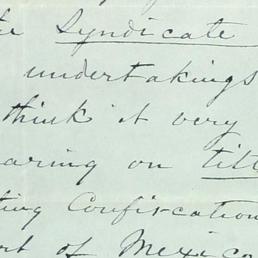 the Syndicate
undertakings
think it very
earing on titl
ting Confiscation
nt of Mexico